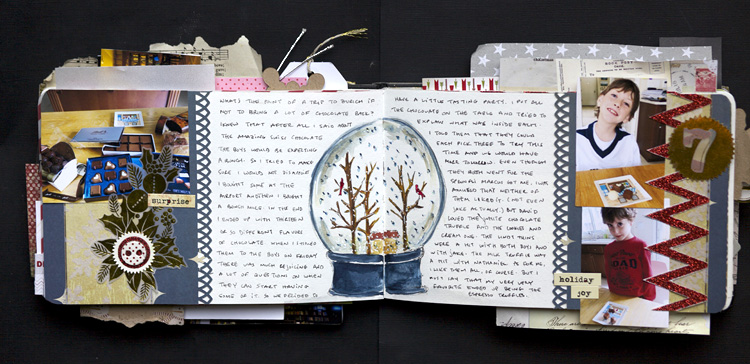 WHAT'S THE POINT OF A TRIP TO ZURICH IF
NOT TO BRING A LOT OF CHOCOLATE BACK?
I KNEW THAT AFTER ALL I SAID ABOUT
THE AMAZING SWISS CHOCOLATE
THE BOYS WOULD BE EXPECTING
A BUNCH. SO I TRIED TO MAKE
SURE I WOULD NOT DISAPPOINT
I BOUGHT SOME AT THE
AIRPORT AND THEN I BOUGHT
A BUNCH MORE. IN THE END
I ENDED UP WITH THIRTEEN
OR SO DIFFERENT FLAVORS
OF CHOCOLATE WHEN I SHOWED
THEM TO THE BOYS ON FRIDAY
THERE WAS MUCH REJOICING AND
A LOT OF QUESTIONS ON WHEN
THEY CAN START HAVING
SOME OF IT. SO WE DECIDED TO
surprise
HAVE A LITTLE TASTING PARTY. I PUT ALL
THE CHOCOLATE ON THE TABLE AND TRIED TO
EXPLAIN WHAT WAS INSIDE EACH.
I TOLD THEM THAT THEY COULD
EACH PICK THREE TO TRY THIS
TIME AND WE WOULD HAVE
MORE TOMORROW. EVEN THOUGH
THEY BOTH WENT FOR THE
SPECIAL MARCH FIRST, I WAS
AMAZED THAT NEITHER OF
THEM LIKED IT. (NOT EVEN
JAKE ACTUALLY) BUT DAVID
LOVED THE WHITE CHOCOLATE
TRUFFLE AND THE COOKIES AND
CREAM ONE. THE
WERE A HIT WITH BOTH BOYS AND
WITH JAKE. THE MILK TRUFFLE WAS
A HIT WITH NATHANIEL. AS FOR ME,
I LIKE THEM ALL, OF COURSE. BUT I
MUST SAY THAT MY VERY VERY
FAVORITE ENDED UP BEING THE
ESPRESSO TRUFFLES.
7
holiday
joy